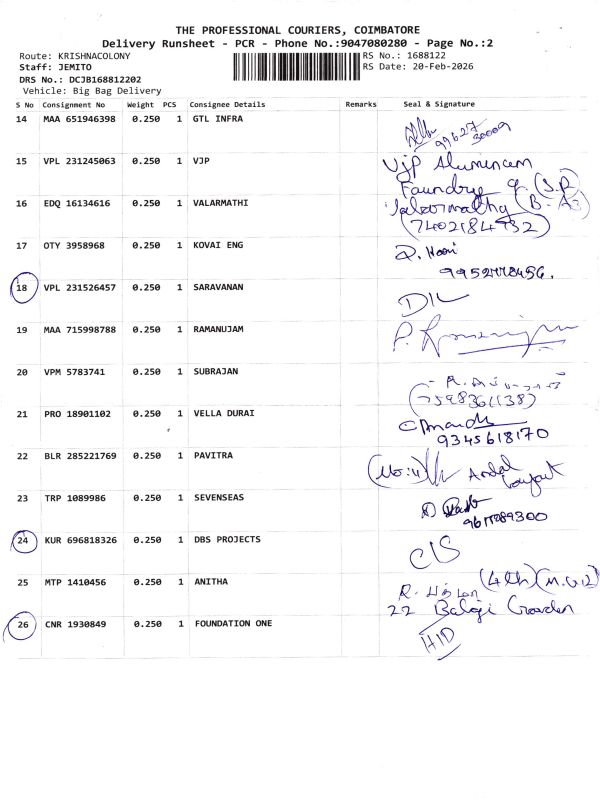 THE PROFESSIONAL COURIERS, COIMBATORE
Delivery Runsheet - PCR - Phone No.:9047080280 - Page No.:2
Route: KRISHNACOLONY RS No.: 1688122
Staff: JEMITO RS Date: 20-Feb-2026
DRS No.: DCJB168812202
Vehicle: Big Bag Delivery
S No Consignment No Weight PCS Consignee Details Remarks Seal & Signature
14 MAA 651946398 0.250 1 GTL INFRA
99627 30009
15 VPL 231245063 0.250 1 VJP
VJP Aluminium
Faundry
16 EDQ 16134616 0.250 1 VALARMATHI
(7402184932)
17 OTY 3958968 0.250 1 KOVAI ENG
18 VPL 231526457 0.250 1 SARAVANAN
D/L
19 MAA 715998788 0.250 1 RAMANUJAM
20 VPM 5783741 0.250 1 SUBRAJAN
21 PRO 18901102 0.250 1 VELLA DURAI
9345618170
22 BLR 285221769 0.250 1 PAVITRA
Andal
Layout
23 TRP 1089986 0.250 1 SEVENSEAS
24 KUR 696818326 0.250 1 DBS PROJECTS
C/S
25 MTP 1410456 0.250 1 ANITHA
(4th)
22 Balaji Garden
26 CNR 1930849 0.250 1 FOUNDATION ONE
H/D